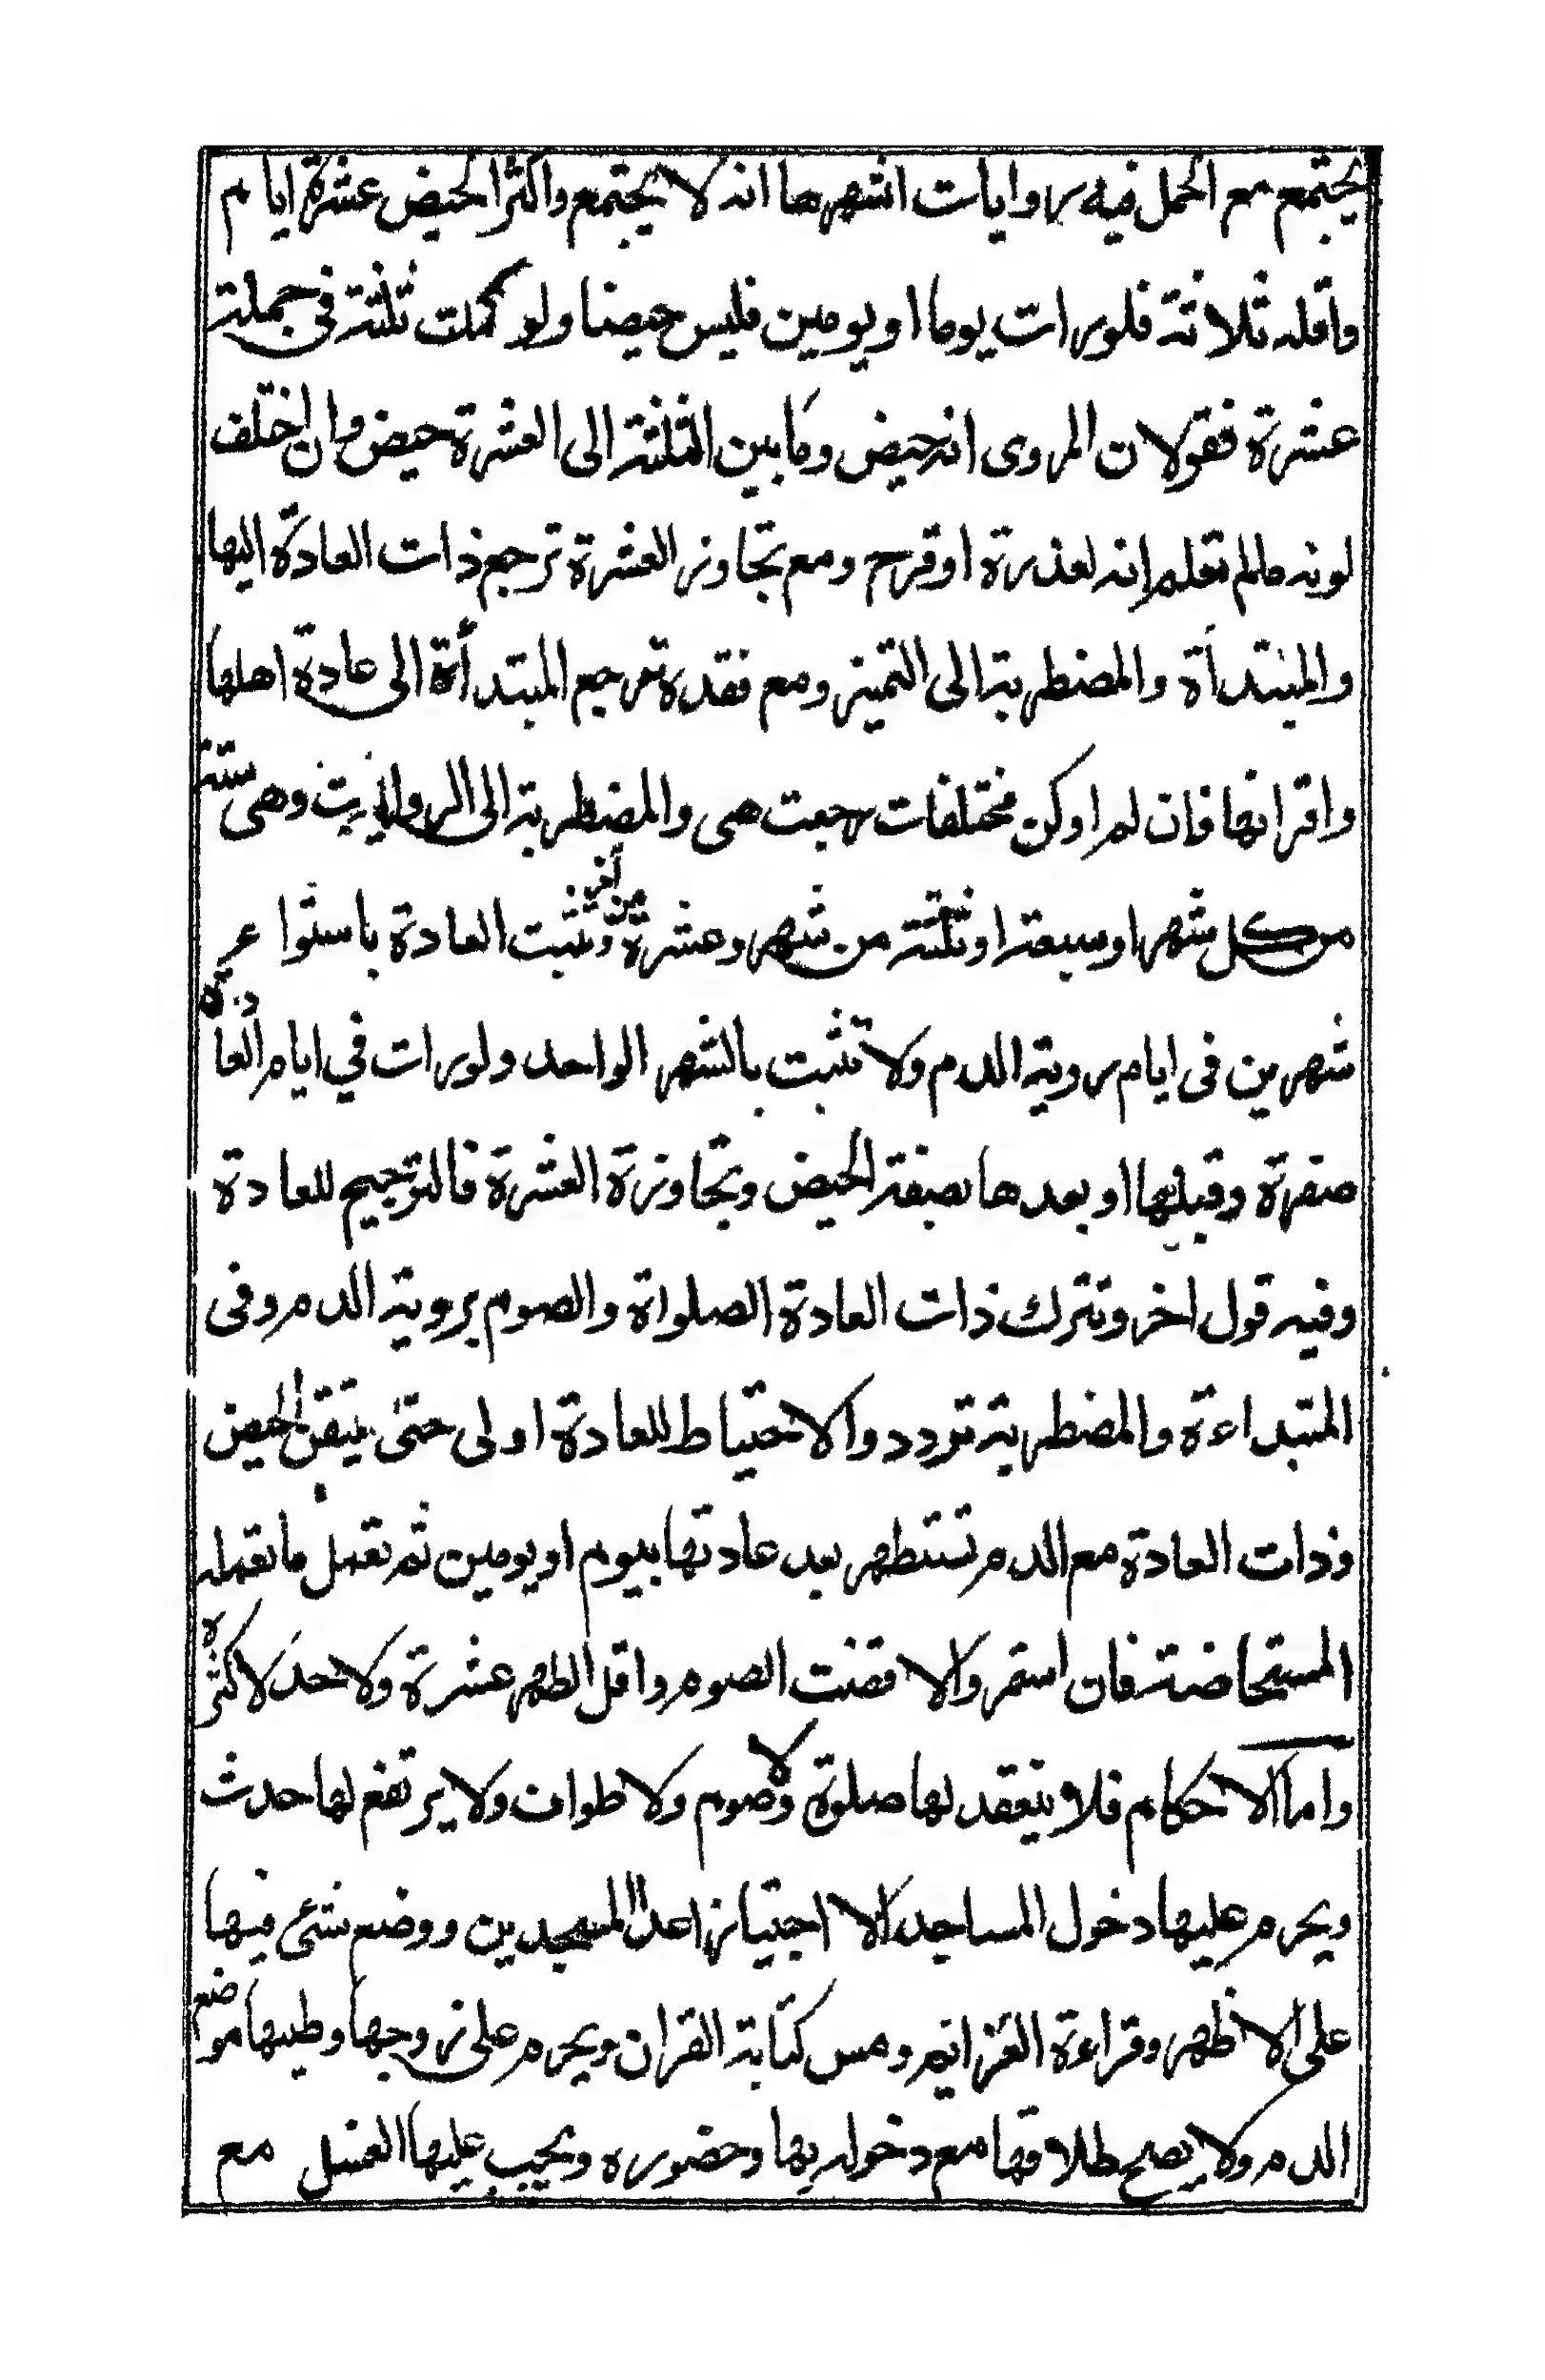 يجتمع مع الحمل فيه روايات اشهرها انه لا يجتمع واكثر الحيض عشرة ايام
واقله ثلاثة فلو رات يوما او يومين فليس حيضا ولو كملت ثلثة في جملة
عشرة فقولان المروى انه حيض وما بين الثلثة الى العشرة حيض وان اختلف
لونه مالم تعلم انه لعذرة او قرح ومع تجاوز العشرة ترجع ذات العادة اليها
والمبتدأة والمضطربة الى التميز ومع فقده ترجع المبتدأة الى عادة اهلها
واقرانها فان لم او كن مختلفات رجعت هى والمضطربة الى الروايت وهى ستة
من كل شهر او سبعة او ثلثة من شهر وعشرة من آخر وتثبت العادة باستوا
شهرين فى ايام روية الدم ولا تثبت بالشهر الواحد ولو رات في ايام العادة
صفرة وقبلها او بعدها بصفة الحيض وتجاوزة العشرة فالترجيح للعادة
وفيه قول اخر وتترك ذات العادة الصلواة والصوم بروية الدم وفى
المتبداءة والمضطربة تردد والاحتياط للعادة اولى حتى يتقن الحيض
وذات العادة مع الدم تستطهر بعد عادتها بيوم او يومين ثم تعمل ما تعمله
المستحاضة فان استمر والا قضت الصوم واقل الطهر عشرة ولا حد لاكثره
واما الاحكام فلا ينعقد لها صلوة ولا صوم ولا طواف ولا يرتفع لها حدث
ويحرم عليها دخول المساجد الا اجتيازا عدا المسجدين ووضع شئ فيها
على الاظهر وقراءة العزايم ومس كتابة القران ويحرم على زوجها وطيها موضع
الدم ولا يصح طلاقها مع دخوله بها وحضوره ويجب عليها الغسل مع